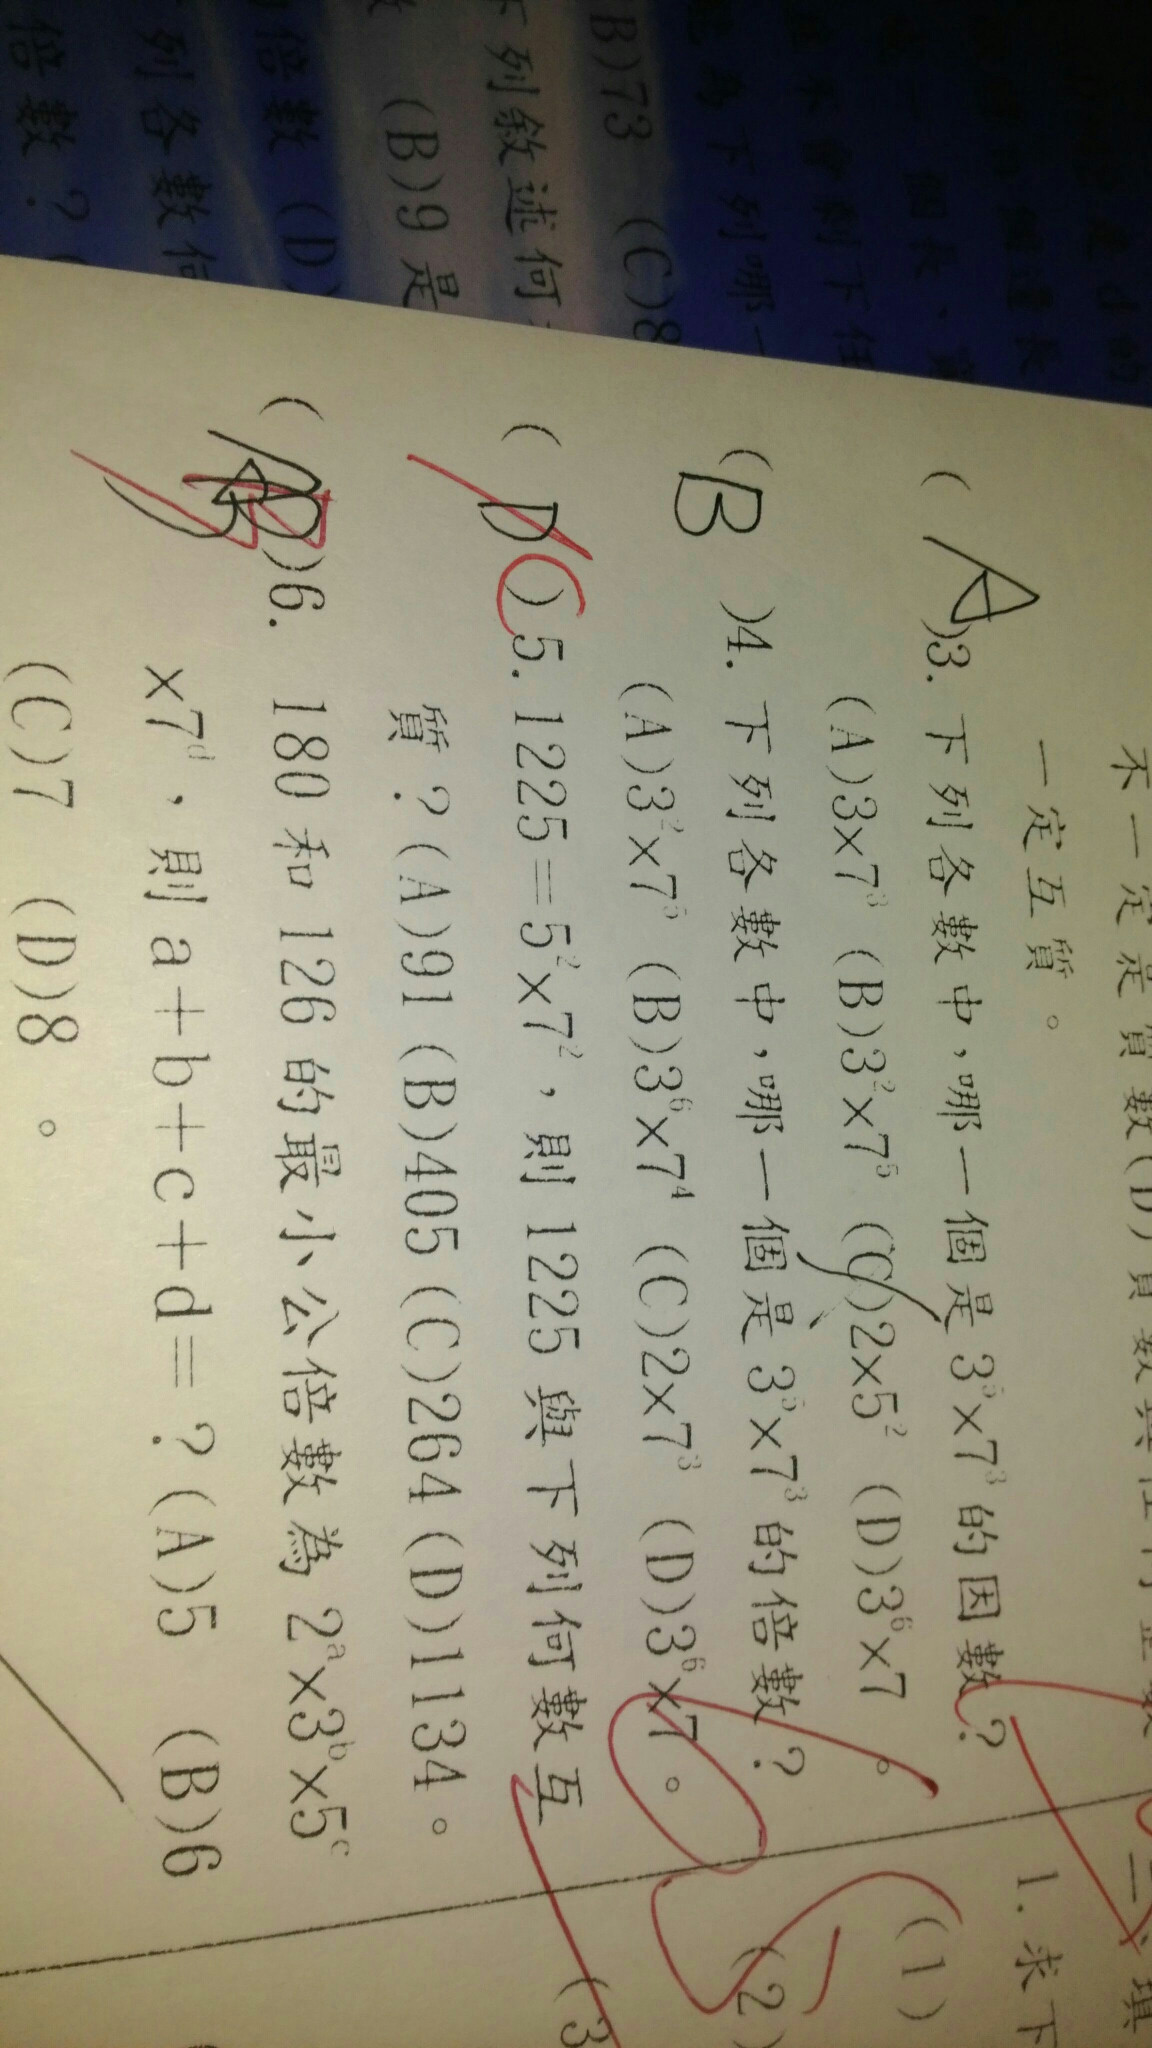 不一定是質數(D)質數
一定互質。
(A)3. 下列各數中,哪一個是3⁵×7³的因數?
(A)3×7³ (B)3²×7⁵ (C)2×5² (D)3⁶×7。
(B)4. 下列各數中,哪一個是3⁵×7³的倍數?
(A)3²×7⁵ (B)3⁶×7⁴ (C)2×7³ (D)3⁶×7。
(D)C5. 1225=5²×7²,則1225與下列何數互
質?(A)91 (B)405 (C)264 (D)1134。
( )6. 180和126的最小公倍數為2ᵃ×3ᵇ×5ᶜ
×7ᵈ,則a+b+c+d=?(A)5 (B)6
(C)7 (D)8。
1. 求下
(1)
(2)
(3
為下列哪一
B)73 (C)8
下列敘述何
(B)9是
倍數 (D)
列各數何
倍數?(